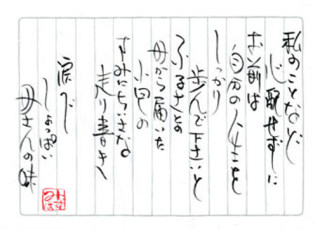 私のことなど
心配せずに
お前は
自分の人生を
しっかり
歩んで下さいと
ふるさとの
母から届いた
小包の
すみにちいさな
走り書き
涙で
しょっぱい
母さんの味